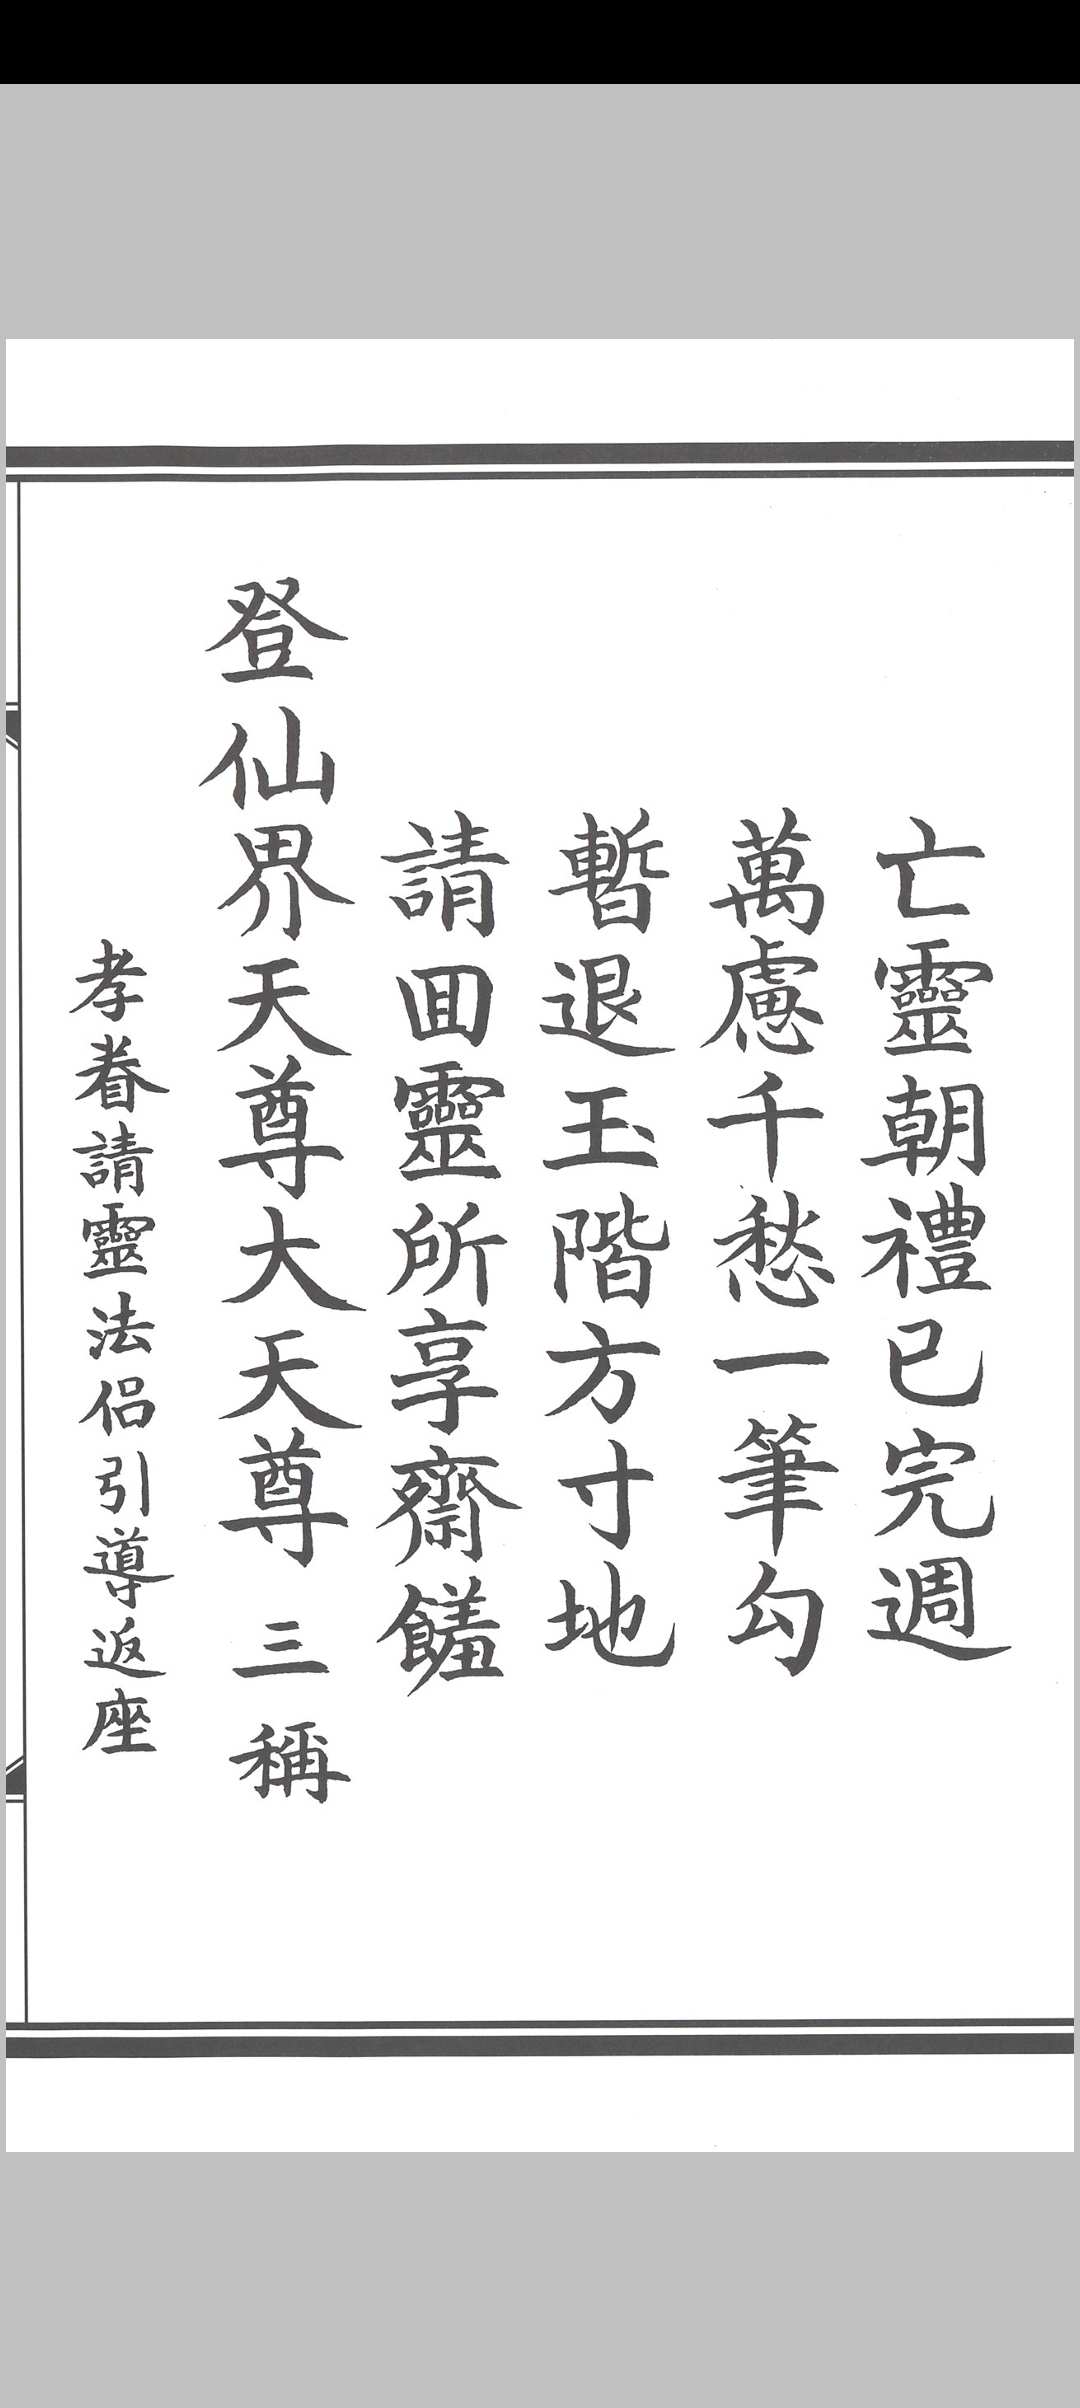 亡靈朝禮已完週
萬慮千愁一筆勾
暫退玉階方寸地
請囬靈所享齋饈
登仙界天尊大天尊 三稱
孝眷請靈法侶引導返座